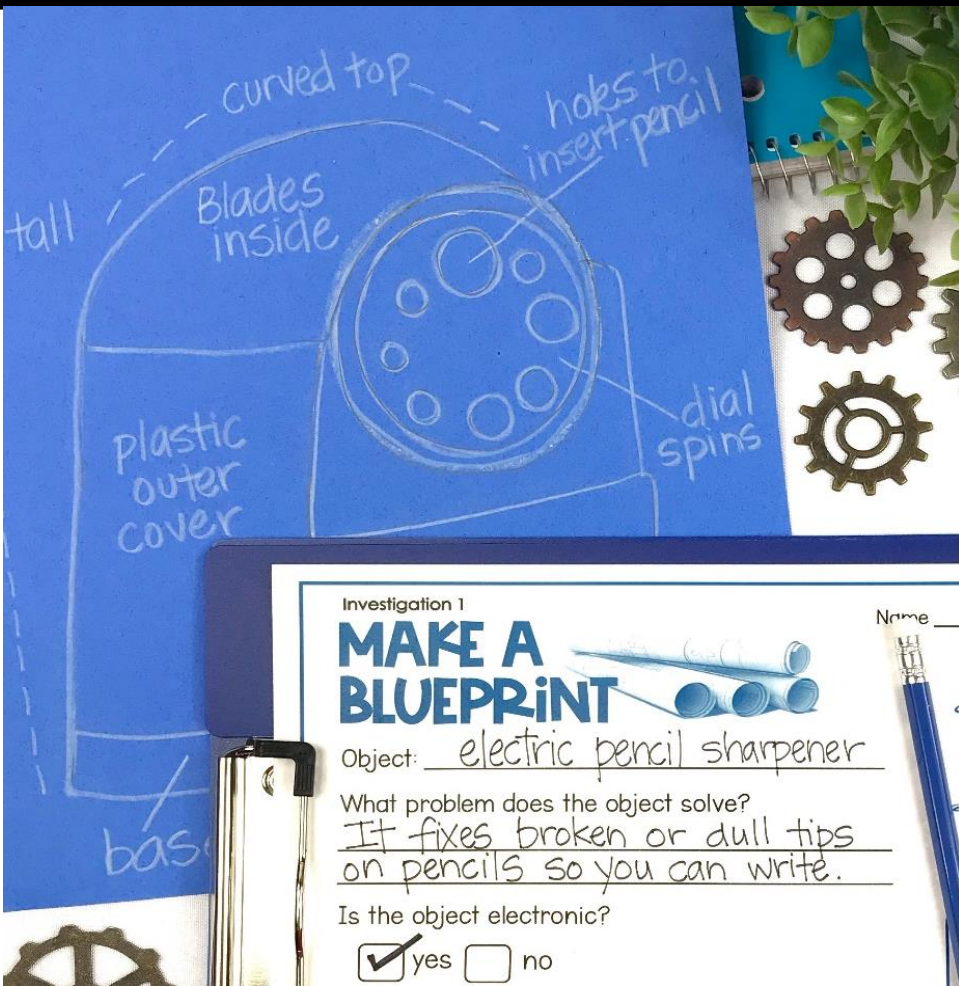 curved top
holes to
insert pencil
tall
Blades
inside
dial
spins
plastic
outer
cover
Investigation 1
Name
MAKE A
BLUEPRiNT
Object: electric pencil sharpener
What problem does the object solve?
It fixes broken or dull tips
on pencils so you can write.
Is the object electronic?
yes no